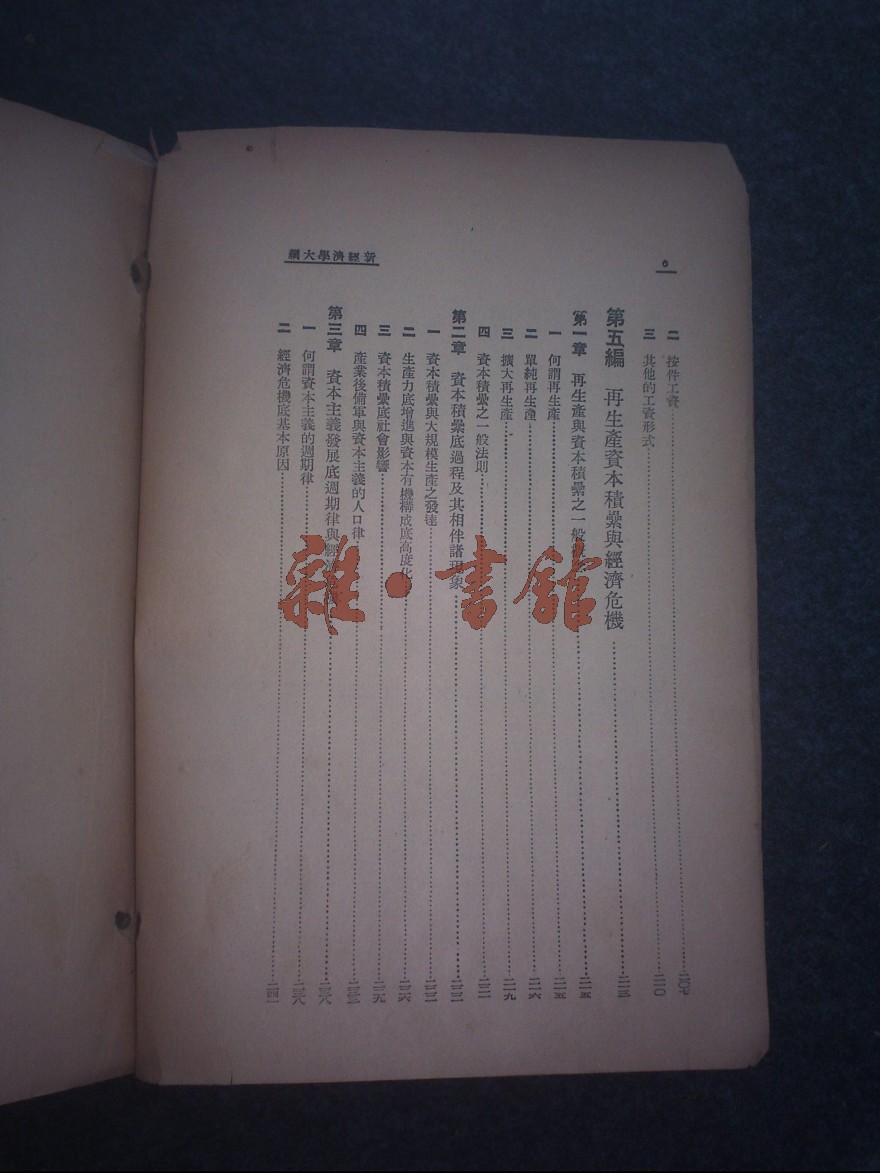 新經濟學大綱
6
二 按件工資
三 其他的工資形式……二一〇
第五編 再生產資本積纍與經濟危機
第一章 再生產與資本積纍之一般……二一五
一 何謂再生產……二一五
二 單純再生產……二一六
三 擴大再生產……二一九
四 資本積纍之一般法則……二二一
第二章 資本積纍底過程及其相伴諸現象
一 資本積纍與大規模生產之發達
二 生產力底增進與資本有機構成底高度化
三 資本積纍底社會影響……二二九
四 產業後備軍與資本主義的人口律
第三章 資本主義發展底週期律與經濟
一 何謂資本主義的週期律……二三八
二 經濟危機底基本原因
雜·書館